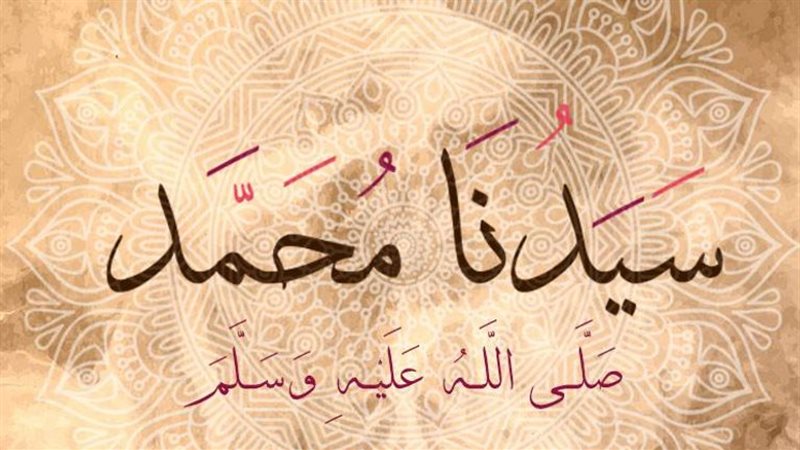 سَيَدُنَا مُحَمَّد
صَلَّـى اللَّـهُ عَلَيْـهِ وَسَـلَّـمَ